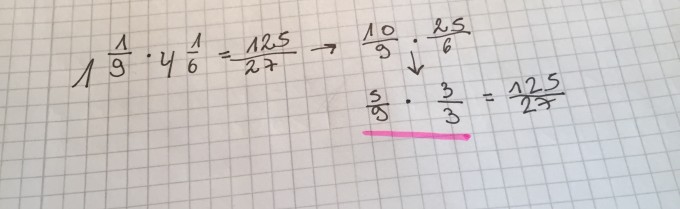 1 1/9 · 4 1/6 = 125/27 → 10/9 · 25/6
↓
5/9 · 3/3 = 125/27